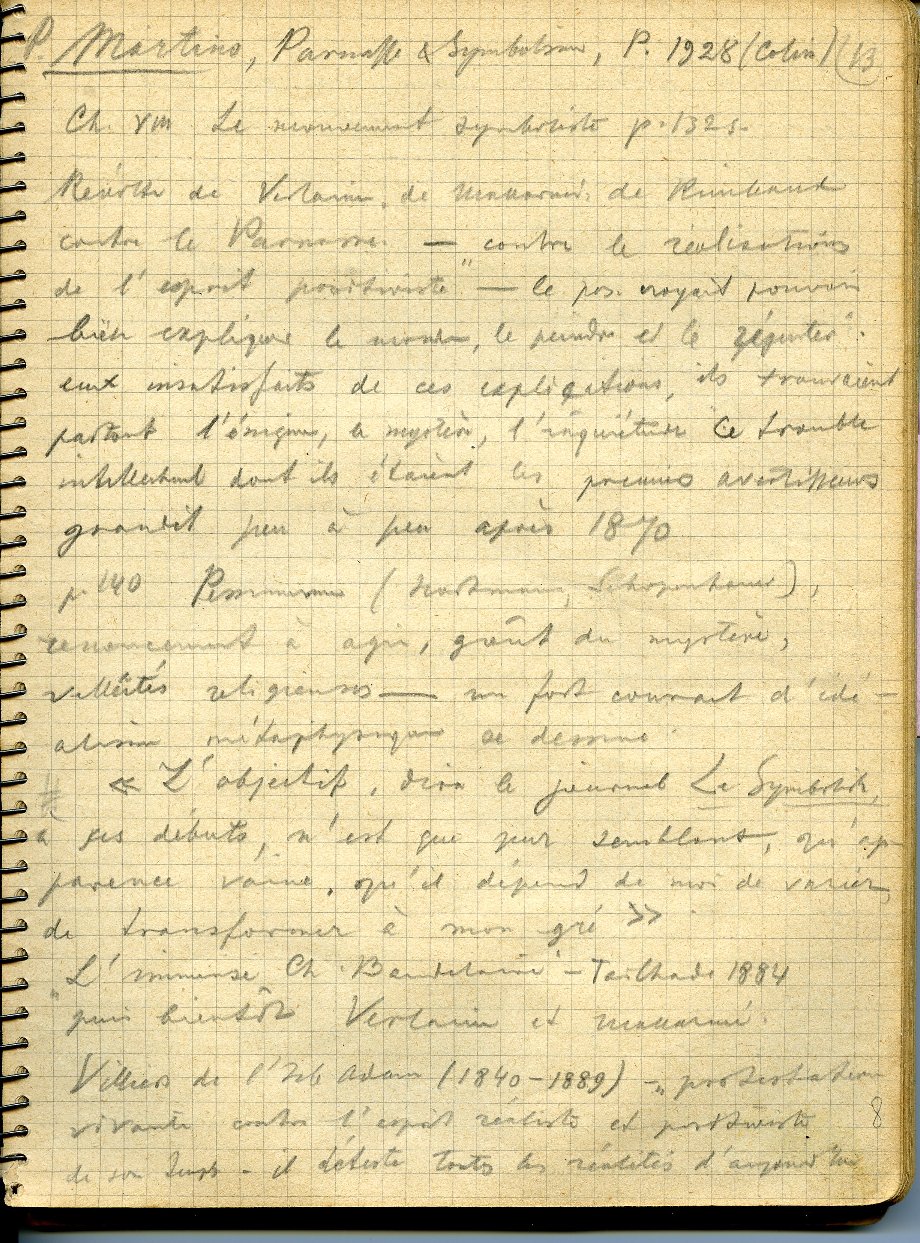 P. Martino, Parnasse & Symbolisme, P. 1928 (Colin) (13
Ch. VIII Le mouvement symboliste p. 132 s.
Révolte de Verlaine, de Mallarmé, de Rimbaud
contre le Parnasse. — contre le réalisations
de l'esprit positiviste" — le pos. croyait pouvoir
bien expliquer le monde, le peindre et le
eux insatisfaits de ces explications, ils trouvaient
partout l'énigme, le mystère, l'inquiétude Ce trouble
intellectuel dont ils étaient les premiers avertisseurs
grandit peu à peu après 1870
p. 140 Pessimisme (Hartmann, Schopenhauer),
renoncement à agir, goût du mystère,
velléités religieuses — un fort courant d'idé-
alisme métaphysique se dessine.
« L'objectif, dira le journal Le Symboliste,
à ses débuts, n'est que pur semblant, qu'ap-
parence vaine, qu'il dépend de moi de varier,
de transformer à mon gré »
"L'immense Ch. Baudelaire" – Tailhade 1884
puis bientôt Verlaine et Mallarmé.
Villiers de l'Isle Adam (1840–1889) – „protestation
vivante contre l'esprit réaliste et positiviste
de son temps – il déteste toutes les réalités d'aujourd'hui
8